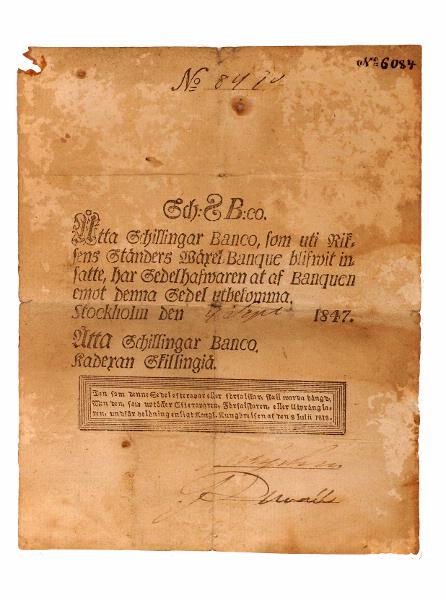 No 6084
No
Sch: 8 B:co.
Åtta Schillingar Banco, som uti Rik-
sens Ständers Wäxel-Banque blifwit in-
satte, har Sedelhafwaren at af Banquen
emot denna Sedel utbekomma.
Stockholm den 1847.
Åtta Schillingar Banco.
Kadexan Skillingiä.
Den som denne Sedel efterapar eller förfalskar, skall warda hängd;
Men den, som uptäcker Efteraparen, Förfalskaren, eller Utprångla-
ren, undfår belöning enligt Kongl. Kungörelsen af den 8 Julii 1818.